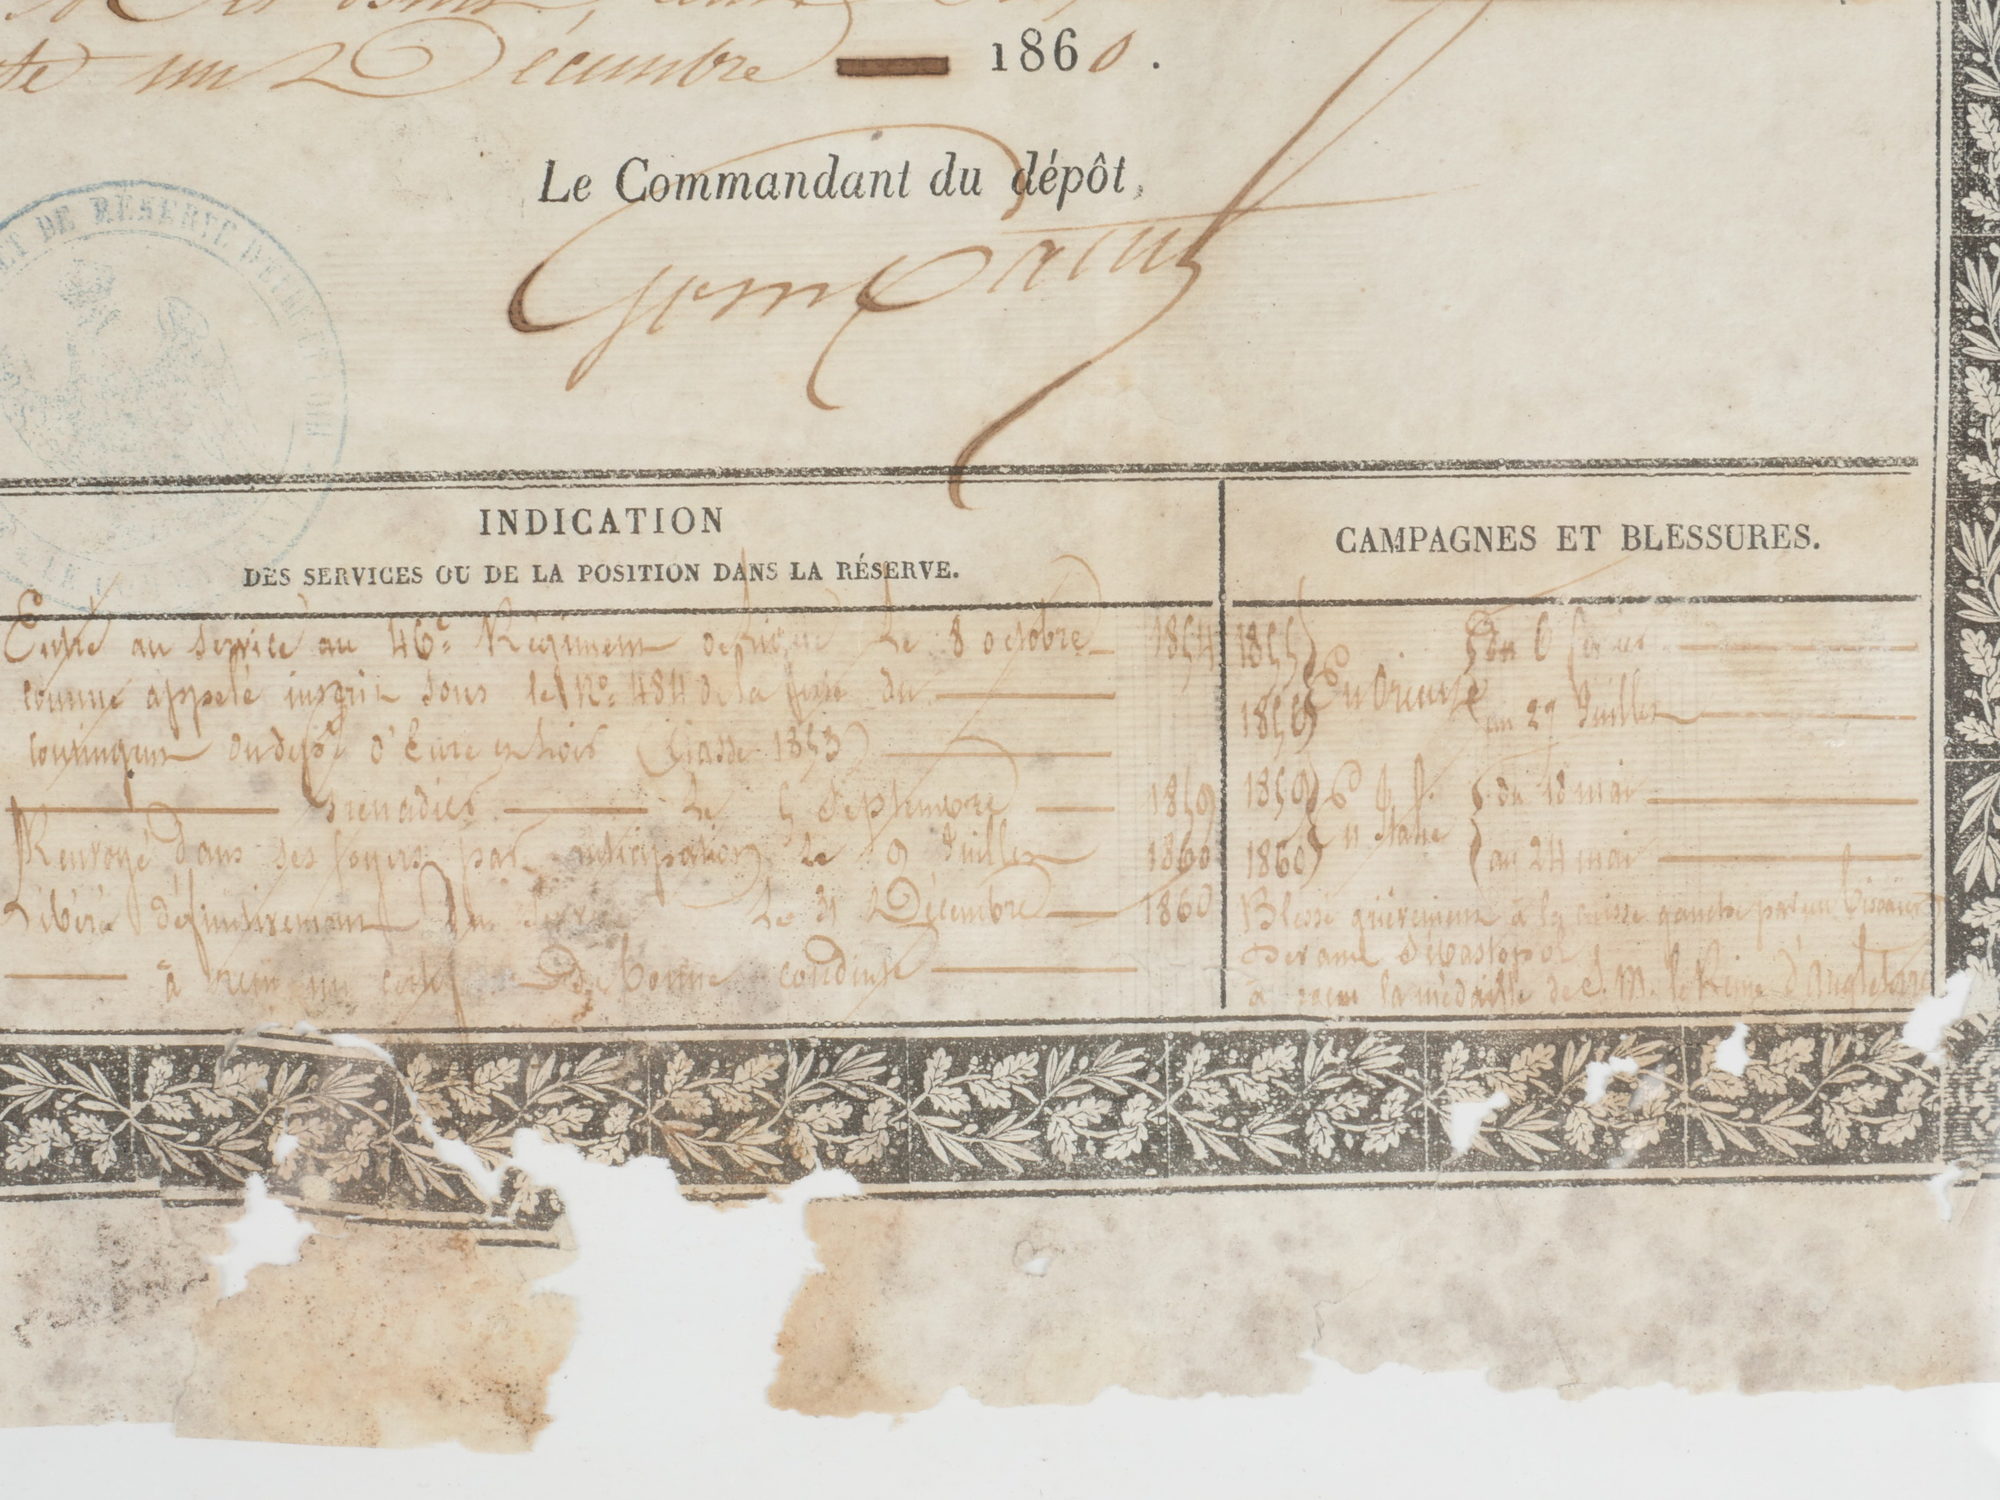 un Décembre 1860.
Le Commandant du dépôt,
DE RÉSERVE D'EURE ET LOIR
INDICATION
DES SERVICES OU DE LA POSITION DANS LA RÉSERVE.
CAMPAGNES ET BLESSURES.
Entré au service au 46e Régiment de Ligne le 8 octobre 1854
comme appelé inscrit sous le No 484 de la liste du
contingent du dépt d'Eure et Loir (Classe 1853)
Grenadier le 5 Septembre 1859
Renvoyé dans ses foyers par anticipation le 9 Juillet 1860
Libéré définitivement du service le 31 Décembre 1860
à reçu un certif de bonne conduite
1855 En Orient du 6
1856 au 27 Juillet
1859 du 18 mai
1860 Italie au 24 mai
Blessé grièvement à la cuisse gauche par un biscaïen
devant Sébastopol
à reçu la médaille de S. M. la Reine d'Angleterre